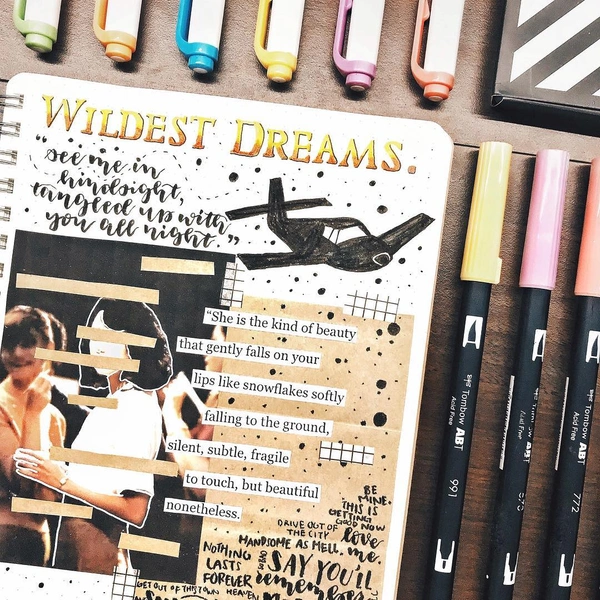 WILDEST DREAMS.
"see me in
hindsight,
tangled up with
you all night."
"She is the kind of beauty
that gently falls on your
lips like snowflakes softly
falling to the ground,
silent, subtle, fragile
to touch, but beautiful
nonetheless.
BE
MINE.
THIS IS
GETTING
GOOD NOW
DRIVE OUT OF
THE CITY
love
me.
HANDSOME AS HELL.
NOTHING
LASTS
FOREVER
SAY YOU'LL
remember
GET OUT OF THIS TOWN
HEAVEN
Tombow ABT
Acid Free
991
Tombow ABT
Acid Free
Tombow ABT
Acid Free
772